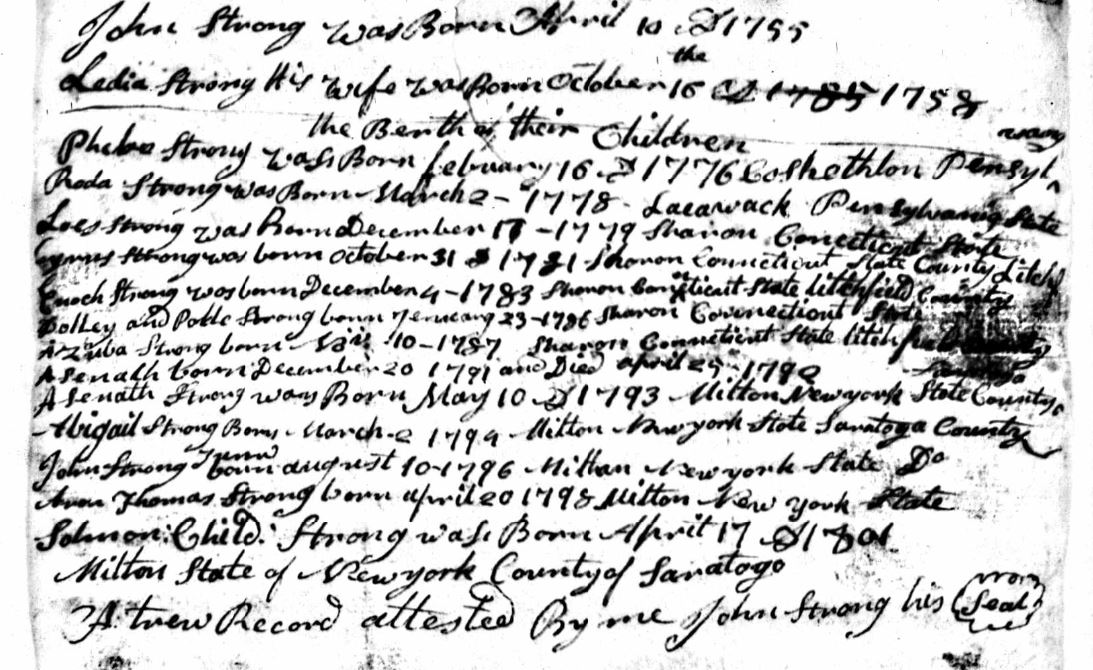 John Strong was Born April 10 AD 1755
the
Ledia Strong His wife was Born October 16 AD 1785 1758
the Berth of their Children
Phebe Strong was Born february 16 AD 1776 Coshethton Pensyl
Roda Strong was Born March 2 - 1778 - Lacawack Pensylvania State
Loes Strong was Born December 17 - 1779 Sharon Conecticut State
Cyrus Strong was born October 31 AD 1781 - Sharon Connecticut State County Litchf
Enoch Strong was born December 4 - 1783 Sharon Conecticut State litchfield County
Dolley and Polle Strong born Jenueary 23 - 1786 Sharon Connecticut State
Azuba Strong born 10 - 1787 Sharon Connecticut State litchfield
Asenath born December 20 1791 and Died april 25 - 1792
Asenath Strong was Born May 10 AD 1793 Milton New york State County
Abigail Strong Born March 2 1794 Milton New york State Saratoga County
John Strong Junr born august 10 1796 Milton New york State Do
Aron Thomas Strong born april 20 1798 Milton New York State
Solmon: Child: Strong was Born April 17 AD 1801
Milton State of New york County of Saratogo
A trew Record attested By me John Strong his Seal